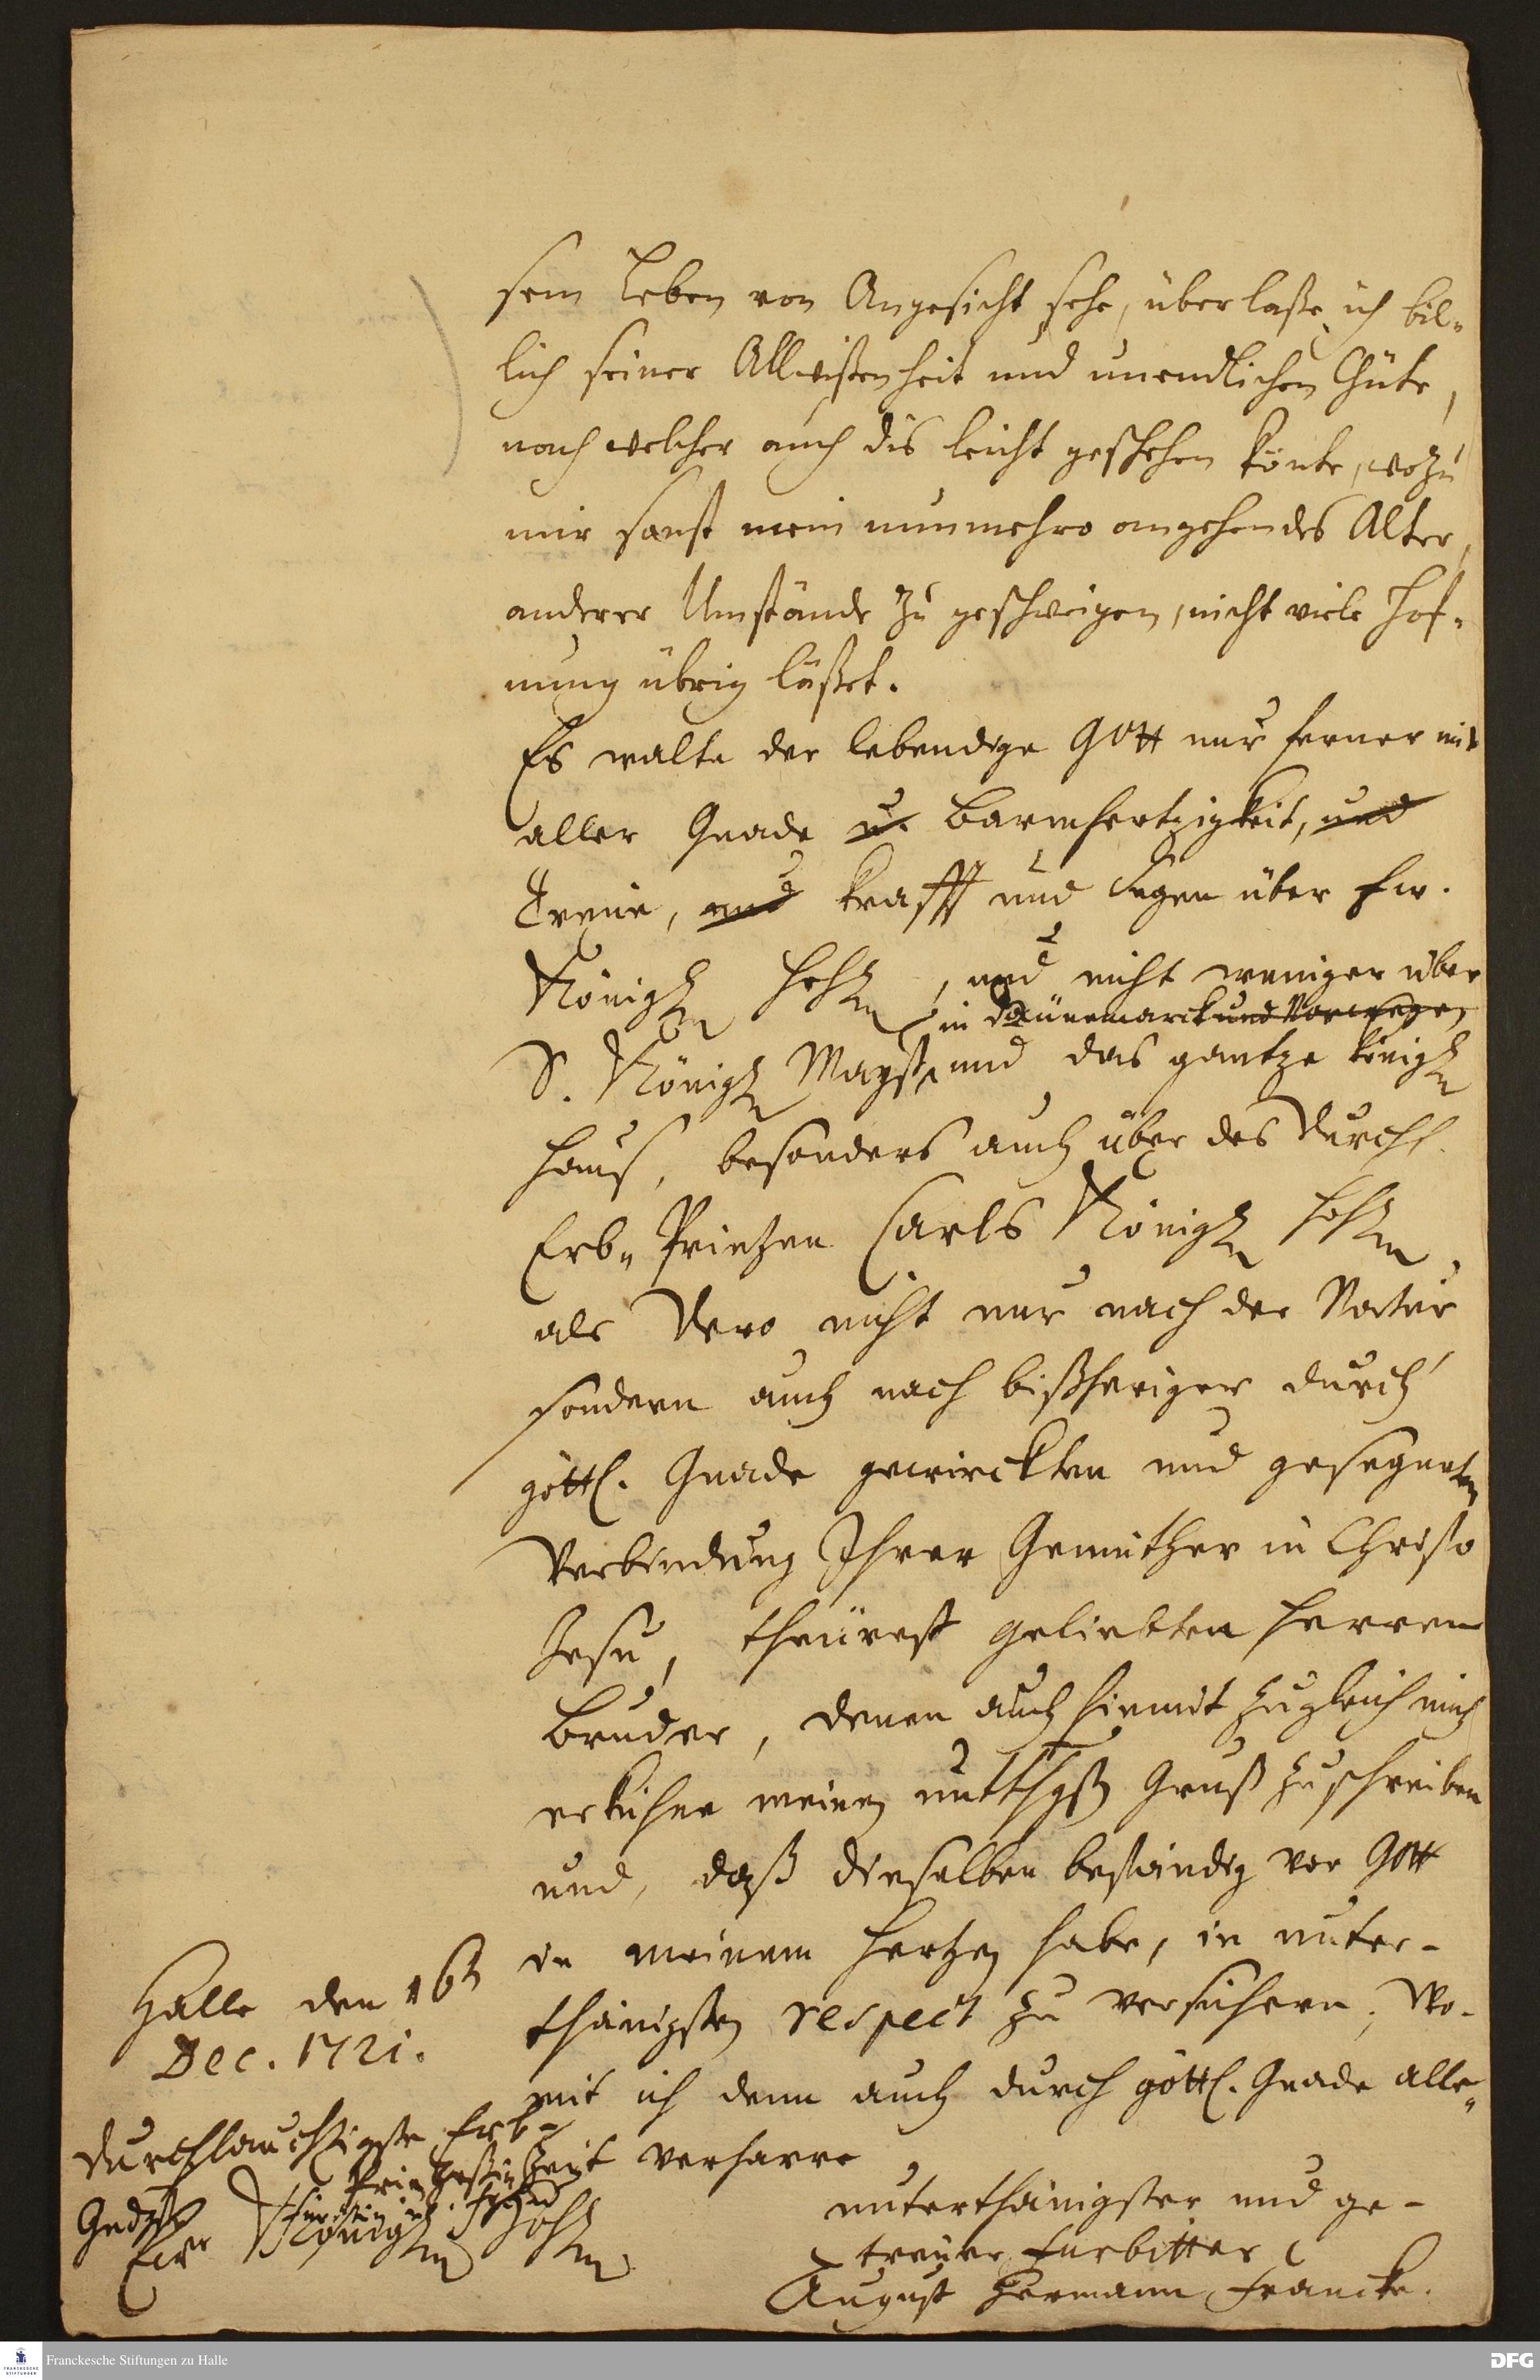 sem Leben von Angesicht sehe, überlaße ich bil-
lich seiner Allwißenheit und unendlichen Güte,
nach welcher auch dis leicht geschehen könte, wozu
mir sonst mein nunmehro angehendes Alter,
anderer Umstände zu geschweigen, nicht viele Hof-
nung übrig läßet.
Es walte der lebendige GOtt nur ferner mit
aller Gnade u. Barmhertzigkeit, und
Treue, und Krafft und Segen über Ew.
Königl. Hoh. , und nicht weniger über
in Dännemarck und Norwegen
S. Königl. Mayst. und das gantze königl.
Hauß, besonders auch über des Durchl.
Erb- Printzen Carls Königl. Hoh.
als Dero nicht nur nach der Natur
sondern auch nach bißheriger durch
göttl. Gnade gewirckten und gesegneten
Verbindung Ihrer Gemüther in Christo
Jesu, theürest geliebten Herren
Bruder, denen auch hiemit zugleich mich
erkühne meinen unterthgst. Gruß zu schreiben
und, daß dieselben beständig vor GOtt
in meinem Hertzen habe, in unter-
thänigsten respect zu versichern; Wo-
mit ich denn auch durch göttl. Gnade alle-
zeit verharre
Halle den 16t.
Dec. 1721.
Durchlauchtigste Erb-
Printzeßin
Gndgste Fürstin
Ewr Königl. Hoh.
unterthänigster und ge-
treuer Fürbitter
August Hermann Francke.
Franckesche Stiftungen zu Halle
FRANCKESCHE
STIFTUNGEN
DFG